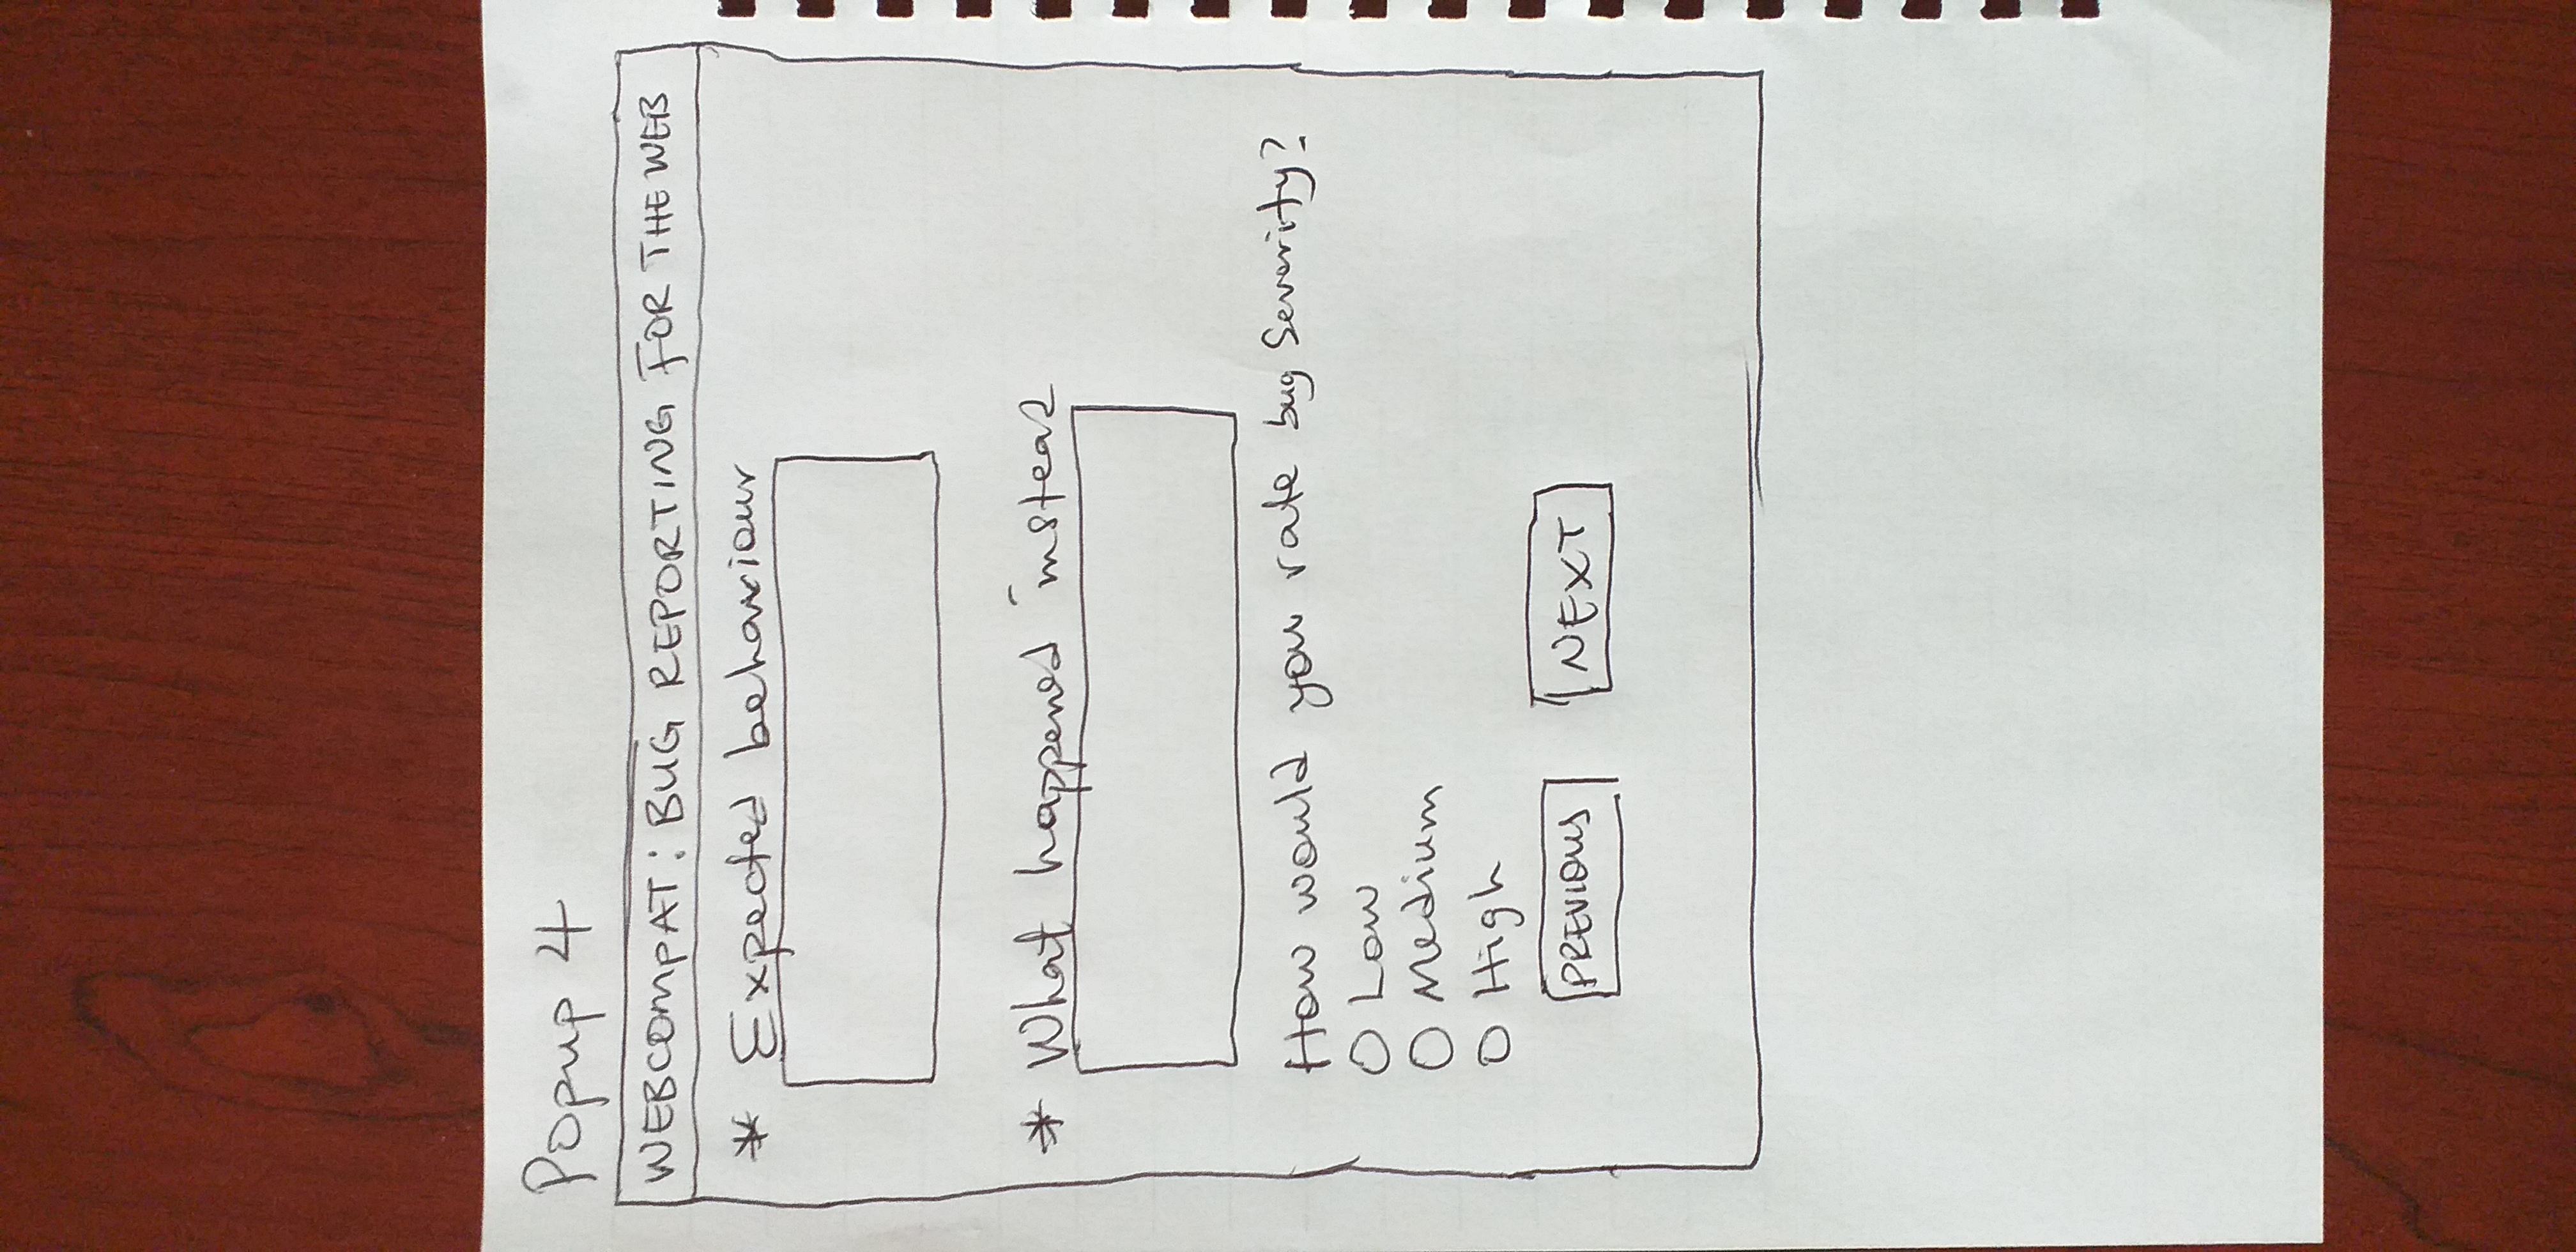 Popup 4
WEBCOMPAT: BUG REPORTING FOR THE WEB
* Expected behaviour
* What happened instead
How would you rate bug Severity?
O Low
O Medium
O High
PREVIOUS NEXT